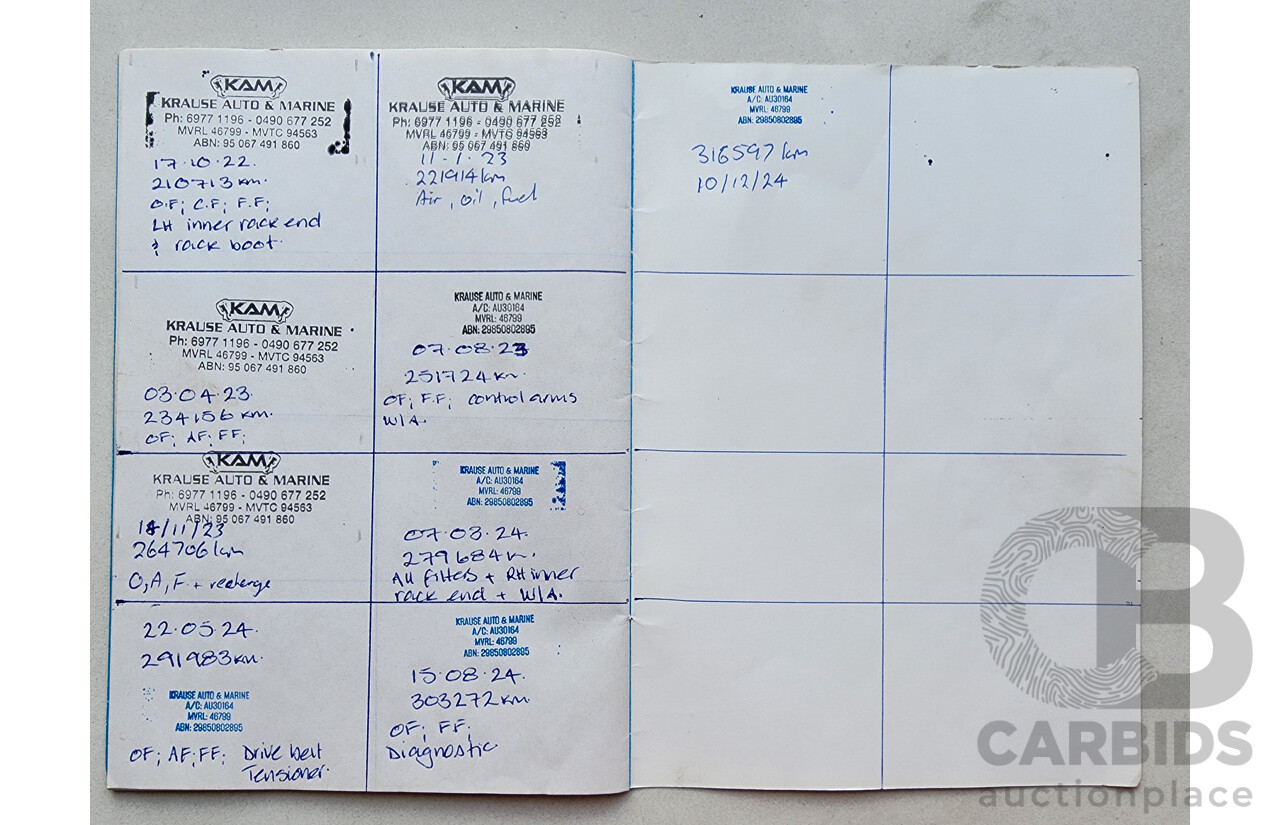 KAM
KRAUSE AUTO & MARINE
Ph: 6977 1196 - 0490 677 252
MVRL 46799 - MVTC 94563
ABN: 95 067 491 860
17.10.22.
210713km.
O.F; C.F; F.F;
LH inner rack end
& rack boot.
KAM
KRAUSE AUTO & MARINE
Ph: 6977 1196 - 0490 677 252
MVRL 46799 - MVTC 94563
ABN: 95 067 491 860
11-1-23
221914km
Air, oil, fuel
KAM
KRAUSE AUTO & MARINE
Ph: 6977 1196 - 0490 677 252
MVRL 46799 - MVTC 94563
ABN: 95 067 491 860
03.04.23.
234156km.
OF; AF; FF;
KRAUSE AUTO & MARINE
A/C: AU30164
MVRL: 46799
ABN: 29850802895
07.08.23
251724km.
OF; F.F; control arms
W/A.
KAM
KRAUSE AUTO & MARINE
Ph: 6977 1196 - 0490 677 252
MVRL 46799 - MVTC 94563
ABN: 95 067 491 860
/11/23
264706km
O, A, F + recharge
KRAUSE AUTO & MARINE
A/C: AU30164
MVRL: 46799
ABN: 29850802895
07.03.24.
279684km.
All filters + RH inner
rack end + W/A.
22.05.24.
291983km.
KRAUSE AUTO & MARINE
A/C: AU30164
MVRL: 46799
ABN: 29850802895
OF; AF; FF; Drive belt
Tensioner.
KRAUSE AUTO & MARINE
A/C: AU30164
MVRL: 46799
ABN: 29850802895
15.08.24.
303272km.
OF; FF;
Diagnostic
KRAUSE AUTO & MARINE
A/C: AU30164
MVRL: 46799
ABN: 29850802895
316597km
10/12/24
CARBIDS
auctionplace